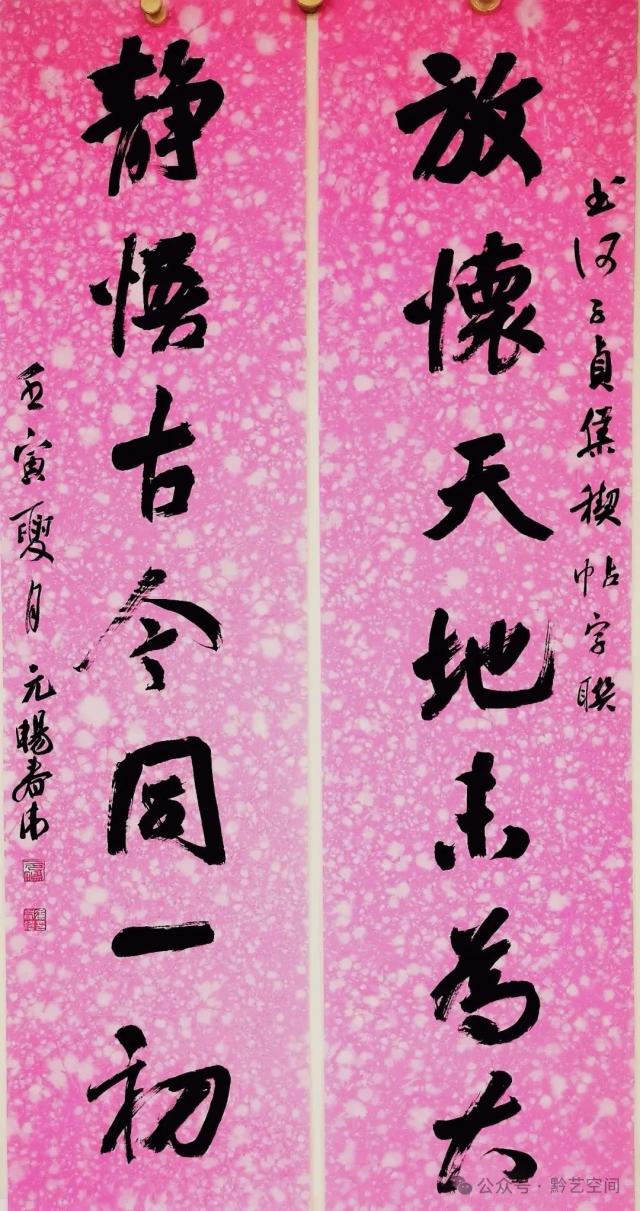 书何子貞集禊帖字聯
放懷天地未為大
静悟古今同一初
壬寅夏月元暘春
公众号·黔艺空间